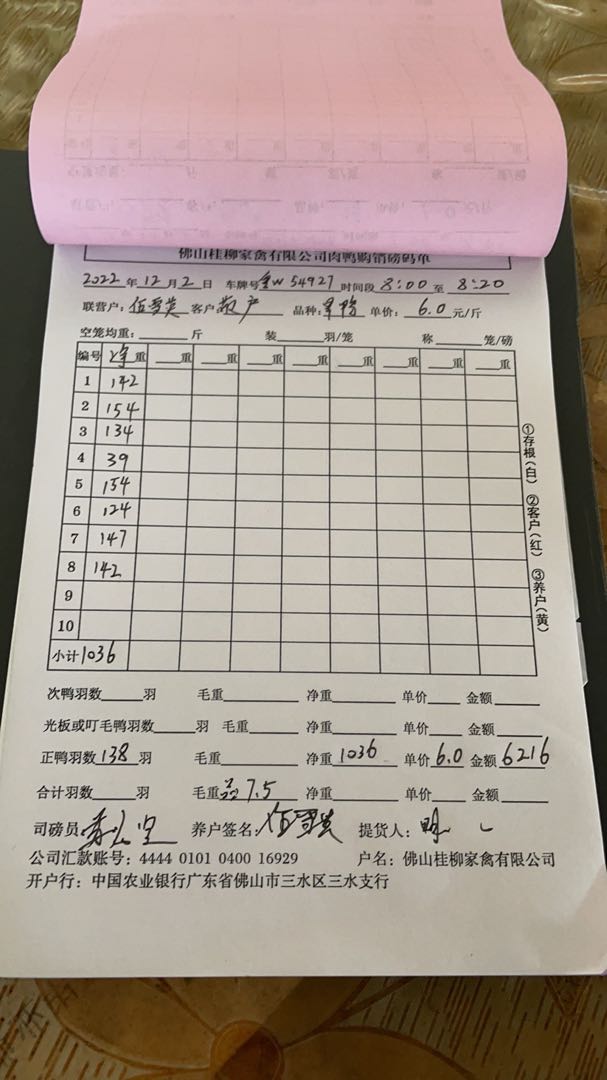 佛山桂柳家禽有限公司肉鸭购销磅码单
2022年12月2日 车牌号 W54927 时间段8:00至8:20
联营户: 客户散户 品种: 单价:6.0元/斤
空笼均重:____斤 装____羽/笼 称____笼/磅
编号 净重 __重 __重 __重 __重 __重 __重 __重 __重
1 142
2 154
3 134
4 39
5 154
6 124
7 147
8 142
9
10
小计 1036
①存根(白) ②客户(红) ③养户(黄)
次鸭羽数____羽 毛重____ 净重____ 单价____ 金额____
光板或叮毛鸭羽数____羽 毛重____ 净重____ 单价____ 金额____
正鸭羽数138羽 毛重____ 净重1036 单价6.0 金额6216
合计羽数____羽 毛重 7.5 净重____ 单价____ 金额____
司磅员: 养户签名: 提货人:
公司汇款账号:4444 0101 0400 16929 户名:佛山桂柳家禽有限公司
开户行:中国农业银行广东省佛山市三水区三水支行